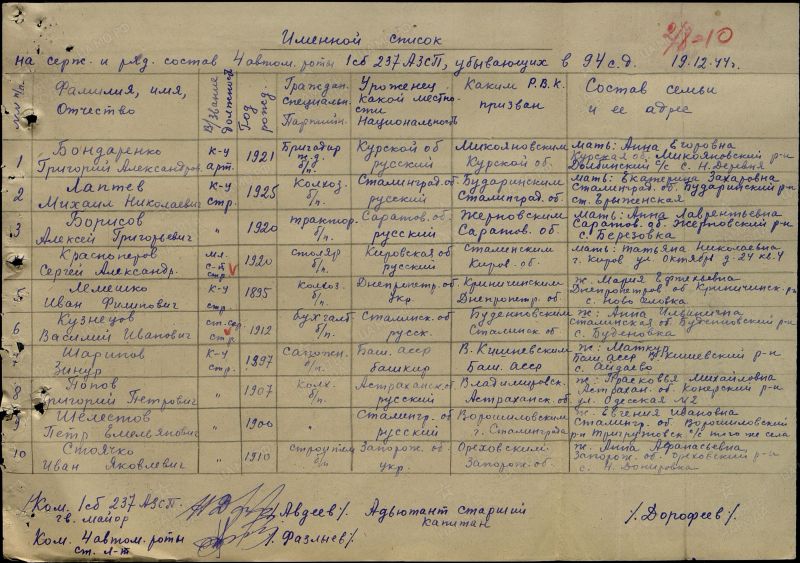 2/8=10
Именной список
на серж. и ряд. состав 4 автом. роты 1сб 237 АЗСП, убывающих в 94 с.д. 19.12.44г.
№№ п/п Фамилия, имя, Отчество В/звание должность Год рожд. Граждан. специальн. Партийн. Уроженец какой местности Национальность Каким Р.В.К. призван Состав семьи и ее адрес
1 Бондаренко к-ц 1921 Бригадир Курской об Микояновским мать: Анна Егоровна
Григорий Александров. арт. ж.д. б/п. русский Курской об. Курская об. Микояновский р-н
с/с с. Н. Деревня
2 Лаптев к-ц 1925 Колхоз. Сталинград. об. Бударинским мать: Екатерина Захаровна
Михаил Николаевич стр. б/п. русский Сталинград. об. Сталинград. об. Бударинский р-н
ст.
3 Борисов " 1920 трактор. Саратов. об. Жерновским Мать: Анна Лаврентьевна
Алексей Григорьевич б/п. русский Саратов. об. Саратов. об. Жерновский р-н
с. Березовка
Красноперов мл. 1920 столяр Кировская об Сталинским мать: Татьяна Николаевна
Сергей Александр. с-т стр. б/п. русский Киров. об. г. Киров ул. Октября д-24 кв. 4
5 Лемешко к-ц 1895 Колхоз. Днепропетр. об Криничинским ж. Мария
Иван Филипович стр. б/п. укр. Днепропетр. об Днепропетров об Криничинск. р-н
с.
6 Кузнецов ст. сер. 1912 бухгалт Сталинск. об Буденновским ж: Анна Ильинична
Василий Иванович стр. б/п. русск. Сталинск об. Сталинская об. Буденновский р-н
с. Буденовка
Шарипов к-ц 1897 Сапожн. Баш. асср В. Кишневским ж:
Зинур стр. б/п. башкир Баш. асср Баш асср р-н
с. Айдаево
8 Попов " 1907 колх. Астраханск. об Владимировск. ж: Прасковья Михайловна
Григорий Петрович б/п. русский Астраханск. об Астрахан. об. р-н
ул. Одесская №2
9 Шелестов " 1900 " Сталингр. об Ворошиловским ж: Евгения Ивановна
Петр Емельянович русский г. Сталинграда Сталингр. об. Ворошиловский
р-н с/с того же села
10 Стоячко " 1910 Запорож. об Ореховским ж: Анна Афанасьевна
Иван Яковлевич б/п укр. Запорож. об Запорож. об. Ореховский р-н
с. Н.
/Ком. 1сб 237 АЗСП. /Авдеев/. Адъютант старший /Дорофеев/.
гв. майор капитан
Ком. 4 автом. роты /Фазлыев/.
ст. л-т